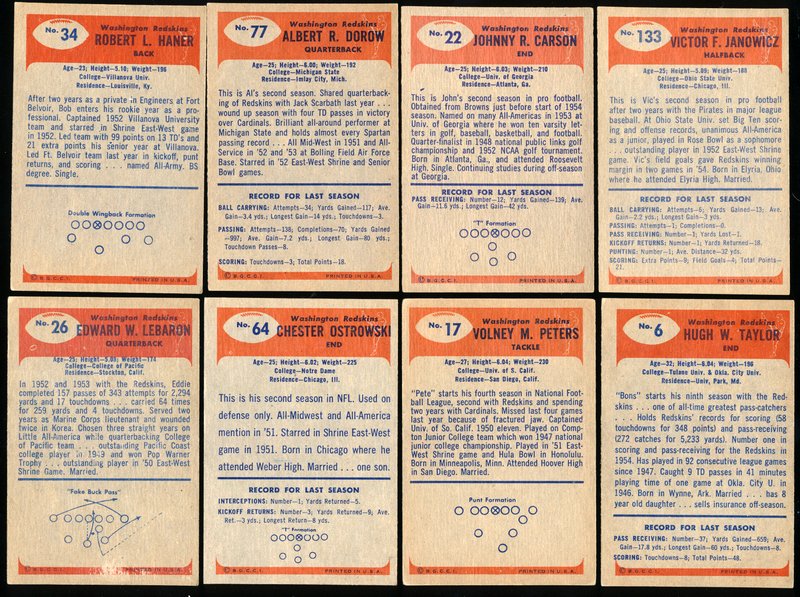 No. 34
Washington Redskins
ROBERT L. HANER
BACK
Age—23; Height—5.10; Weight—196
College—Villanova Univ.
Residence—Louisville, Ky.
After two years as a private in Engineers at Fort
Belvoir, Bob enters his rookie year as a pro-
fessional. Captained 1952 Villanova University
team and starred in Shrine East-West game
in 1952. Led team with 99 points on 13 TD's and
21 extra points his senior year at Villanova.
Led Ft. Belvoir team last year in kickoff, punt
returns, and scoring . . . named All-Army. BS
degree. Single.
Double Wingback Formation
© B.G.C.C.I. PRINTED IN U.S.A.
No. 77
Washington Redskins
ALBERT R. DOROW
QUARTERBACK
Age—25; Height—6.00; Weight—192
College—Michigan State
Residence—Imlay City, Mich.
This is Al's second season. Shared quarterback-
ing of Redskins with Jack Scarbath last year . . .
wound up season with four TD passes in victory
over Cardinals. Brilliant all-around performer at
Michigan State and holds almost every Spartan
passing record . . . All Mid-West in 1951 and All-
Service in '52 and '53 at Bolling Field Air Force
Base. Starred in '52 East-West Shrine and Senior
Bowl games.
RECORD FOR LAST SEASON
BALL CARRYING: Attempts—34; Yards Gained—117; Ave.
Gain—3.4 yds.; Longest Gain—14 yds.; Touchdowns—3.
PASSING: Attempts—138; Completions—70; Yards Gained
—997; Ave. Gain—7.2 yds.; Longest Gain—80 yds.;
Touchdown Passes—8.
SCORING: Touchdowns—3; Total Points—18.
© B.G.C.C.I. PRINTED IN U.S.A.
No. 22
Washington Redskins
JOHNNY R. CARSON
END
Age—25; Height—6.03; Weight—210
College—Univ. of Georgia
Residence—Atlanta, Ga.
This is John's second season in pro football.
Obtained from Browns just before start of 1954
season. Named on many All-Americans in 1953 at
Univ. of Georgia where he won ten varsity let-
ters in golf, baseball, basketball, and football.
Quarter-finalist in 1948 national public links golf
championship and 1952 NCAA golf tournament.
Born in Atlanta, Ga., and attended Roosevelt
High. Single. Continuing studies during off-season
at Georgia.
RECORD FOR LAST SEASON
PASS RECEIVING: Number—12; Yards Gained—139; Ave.
Gain—11.6 yds.; Longest Gain—42 yds.
"T" Formation
© B.G.C.C.I. PRINTED IN U.S.A.
No. 133
Washington Redskins
VICTOR F. JANOWICZ
HALFBACK
Age—25; Height—5.09; Weight—188
College—Ohio State Univ.
Residence—Chicago, Ill.
This is Vic's second season in pro football
after two years with the Pirates in major league
baseball. At Ohio State Univ. set Big Ten scor-
ing and offense records, unanimous All-America
as a junior, played in Rose Bowl as a sophomore
. . . outstanding player in 1952 East-West Shrine
game. Vic's field goals gave Redskins winning
margin in two games in '54. Born in Elyria, Ohio
where he attended Elyria High. Married.
RECORD FOR LAST SEASON
BALL CARRYING: Attempts—6; Yards Gained—13; Ave.
Gain—2.2 yds.; Longest Gain—3 yds.
PASSING: Attempts—1; Completions—0.
PASS RECEIVING: Number—1; Yards Lost—1.
KICKOFF RETURNS: Number—1; Yards Returned—18.
PUNTING: Number—1; Ave. Distance—32 yds.
SCORING: Extra Points—9; Field Goals—4; Total Points—
21.
© B.G.C.C.I. PRINTED IN U.S.A.
No. 26
Washington Redskins
EDWARD W. LEBARON
QUARTERBACK
Age—25; Height—5.09; Weight—174
College—College of Pacific
Residence—Stockton, Calif.
In 1952 and 1953 with the Redskins, Eddie
completed 157 passes of 343 attempts for 2,294
yards and 17 touchdowns . . . carried 64 times
for 259 yards and 4 touchdowns. Served two
years as Marine Corps lieutenant and wounded
twice in Korea. Chosen three straight years on
Little All-America while quarterbacking College
of Pacific team . . . outstanding Pacific Coast
college player in 1949 and won Pop Warner
Trophy . . . outstanding player in '50 East-West
Shrine Game. Married.
"Fake Buck Pass"
© B.G.C.C.I. PRINTED IN U.S.A.
No. 64
Washington Redskins
CHESTER OSTROWSKI
END
Age—25; Height—6.02; Weight—225
College—Notre Dame
Residence—Chicago, Ill.
This is his second season in NFL. Used on
defense only. All-Midwest and All-America
mention in '51. Starred in Shrine East-West
game in 1951. Born in Chicago where he
attended Weber High. Married . . . one son.
RECORD FOR LAST SEASON
INTERCEPTIONS: Number—1; Yards Returned—5.
KICKOFF RETURNS: Number—3; Yards Returned—9; Ave.
Ret.—3 yds.; Longest Return—8 yds.
"T" Formation
© B.G.C.C.I. PRINTED IN U.S.A.
No. 17
Washington Redskins
VOLNEY M. PETERS
TACKLE
Age—27; Height—6.04; Weight—230
College—Univ. of S. Calif.
Residence—San Diego, Calif.
"Pete" starts his fourth season in National Foot-
ball League, second with Redskins and spending
two years with Cardinals. Missed last four games
last year because of fractured jaw. Captained
Univ. of So. Calif. 1950 eleven. Played on Comp-
ton Junior College team which won 1947 national
junior college championship. Played in '51 East-
West Shrine game and Hula Bowl in Honolulu.
Born in Minneapolis, Minn. Attended Hoover High
in San Diego. Married.
Punt Formation
© B.G.C.C.I. PRINTED IN U.S.A.
No. 6
Washington Redskins
HUGH W. TAYLOR
END
Age—32; Height—6.04; Weight—196
College—Tulane Univ. & Okla. City Univ.
Residence—Univ. Park, Md.
"Bons" starts his ninth season with the Red-
skins . . . one of all-time greatest pass-catchers
. . . Holds Redskins' records for scoring (58
touchdowns for 348 points) and pass-receiving
(272 catches for 5,233 yards). Number one in
scoring and pass-receiving for the Redskins in
1954. Has played in 92 consecutive league games
since 1947. Caught 9 TD passes in 41 minutes
playing time of one game at Okla. City U. in
1946. Born in Wynne, Ark. Married . . . has 8
year old daughter . . . sells insurance off-season.
RECORD FOR LAST SEASON
PASS RECEIVING: Number—37; Yards Gained—659; Ave.
Gain—17.8 yds.; Longest Gain—60 yds.; Touchdowns—8.
SCORING: Touchdowns—8; Total Points—48.
© B.G.C.C.I. PRINTED IN U.S.A.